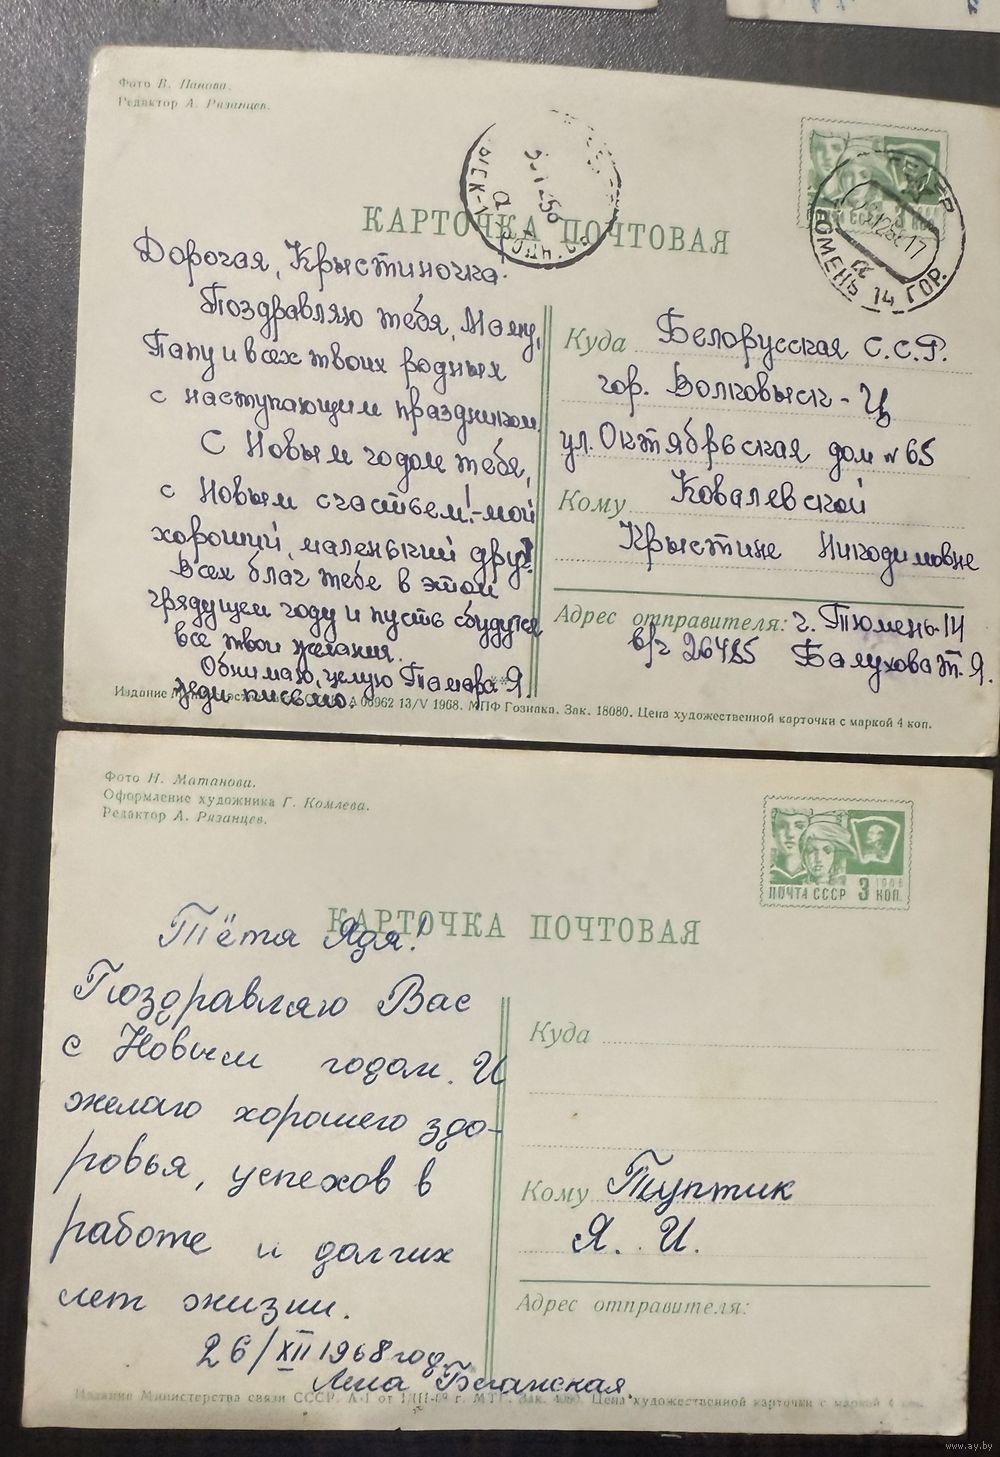 Фото В. Панова.
Редактор А. Рязанцев.
КАРТОЧКА ПОЧТОВАЯ
ТЮМЕНЬ 14 ГОР.
Дорогая, Крыстиночка!
Поздравляю тебя, Маму,
Папу и всех твоих родных
с наступающим праздником.
С Новым годом тебя,
с Новым счастьем! - мой
хороший, маленький друг!
Всех благ тебе в этом
грядущем году и пусть сбудутся
все твои желания.
Обнимаю, целую Тамара Я.
жди письмо.
Куда Белорусская С.С.Р.
гор. Волковыск - Ц
ул. Октябрьская дом № 65
Кому Ковалевской
Крыстине Никодимовне
Адрес отправителя: г. Тюмень-14
в/ч 26485 Балухова Т. Я.
Издание А 08962 13/V 1968. МПФ Гознака. Зак. 18080. Цена художественной карточки с маркой 4 коп.
Фото Н. Матанова.
Оформление художника Г. Комлева.
Редактор А. Рязанцев.
ПОЧТА СССР 3 КОП.
1966
КАРТОЧКА ПОЧТОВАЯ
Тётя Ядя!
Поздравляю Вас
с Новым годом. И
желаю хорошего здо-
ровья, успехов в
работе и долгих
лет жизни.
26/XII 1968 год.
Лена
Куда
Кому Туптик
Я. И.
Адрес отправителя:
Издание Министерства связи СССР. Зак. 4080. Цена художественной карточки с маркой 4 коп.
www.ay.by